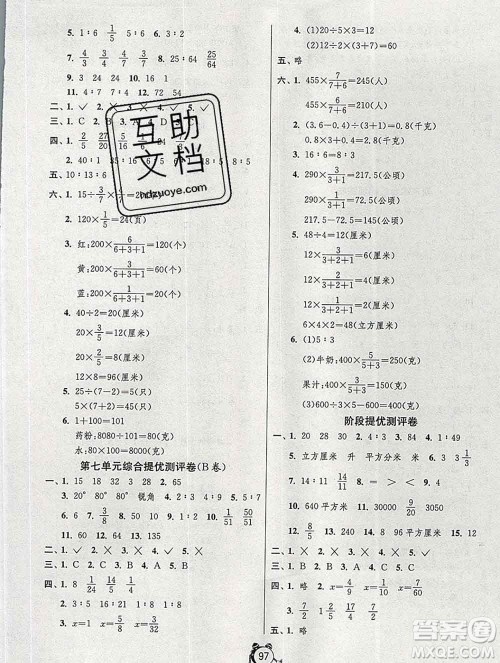 5. 1∶1 1/5 5∶6 5
7. 4/3 3/4 4/7 3/7 8. 25∶64
9. 3/4 4/3 10. 24 16 1
11. 4∶7 12. 54
二、1. ✓
三、1. C 2. A
四、1. 2/5 27/20
2. 16∶1 8∶5
五、10∶13∶6
六、1. 15÷
2. 120×1/5=24(
3. 红:200×6/(6+3+1)=120(个)
黄:200×3/(6+3+1)=60(个)
蓝:200×1/(6+3+1)=20(个)
4. 40÷2=20(厘米)
20×3/5=12(厘米)
12×8=96(厘米)
5. 25÷(7−2)=5(只)
5×(7+2)=45(只)
6. 1+100=101
药粉:8080÷101=80(克)
水:80×100=8000(克)
第七单元综合提优测评卷(B卷)
一、1. 15 18 32 3 2. 3∶4
3. 20° 80° 80° 锐角 4. 2∶1
5. 1∶2 6. 1∶3 7. 8 9. 2 10. 1/51 50/51
二、1. ✓ 2. × 3. × 4. × 5. ×
三、1. C 2. A 3. C 4. B 5. C
四、1. 8 1/24 14/25 2 1/3
2. 1∶4 16∶1 9∶8 1∶5
3. x=1 x=5/4 x=9/10 x=1/8
4. (1)20÷5×3=12(厘米)
(2)12÷2×(3+7)=60(厘米)
五、略
六、1. 455×7/(7+6)=245(人)
455×6/(7+6)=210(人)
2. (3.6−0.4)÷(3+1)=0.8(千克)
0.8×3+0.4=2.8(千克)
3. 290×3/(3+1)=217.5(公顷)
290×1/(3+1)=72.5(公顷)
217.5−72.5=145(公顷)
4. 48÷4=12(厘米)
12×3/(3+2+1)=6(厘米)
12×2/(3+2+1)=4(厘米)
12×1/(3+2+1)=2(厘米)
6×4×2=48(立方厘米)
5. (1)5∶3
(2)牛奶:400×5/(5+3)=250(克)
果汁:400×3/(5+3)=150(克)
(3)1600÷400×250=1000(克)
阶段提优测评卷
一、1. 20 28 30 4 2. 8∶3 4. 1∶49
5. 立方厘米 升 平方分米 立方分米
7. 14 14/11 8. > = < <
10. 640 平方厘米 11. 9/20 3050
12. 8/5 13. 240 14. 96 平方厘米 15. 12
二、1. ✓ 2. × 3. × 4. × 5. ×
三、1. B 2. C 3. A 4. A 5. B
四、3. x=4/9 x=1/10 x=34
五、1. 略 2. 略
97
互助
文档
hdzuoye.com
答案圈
MXQE.COM